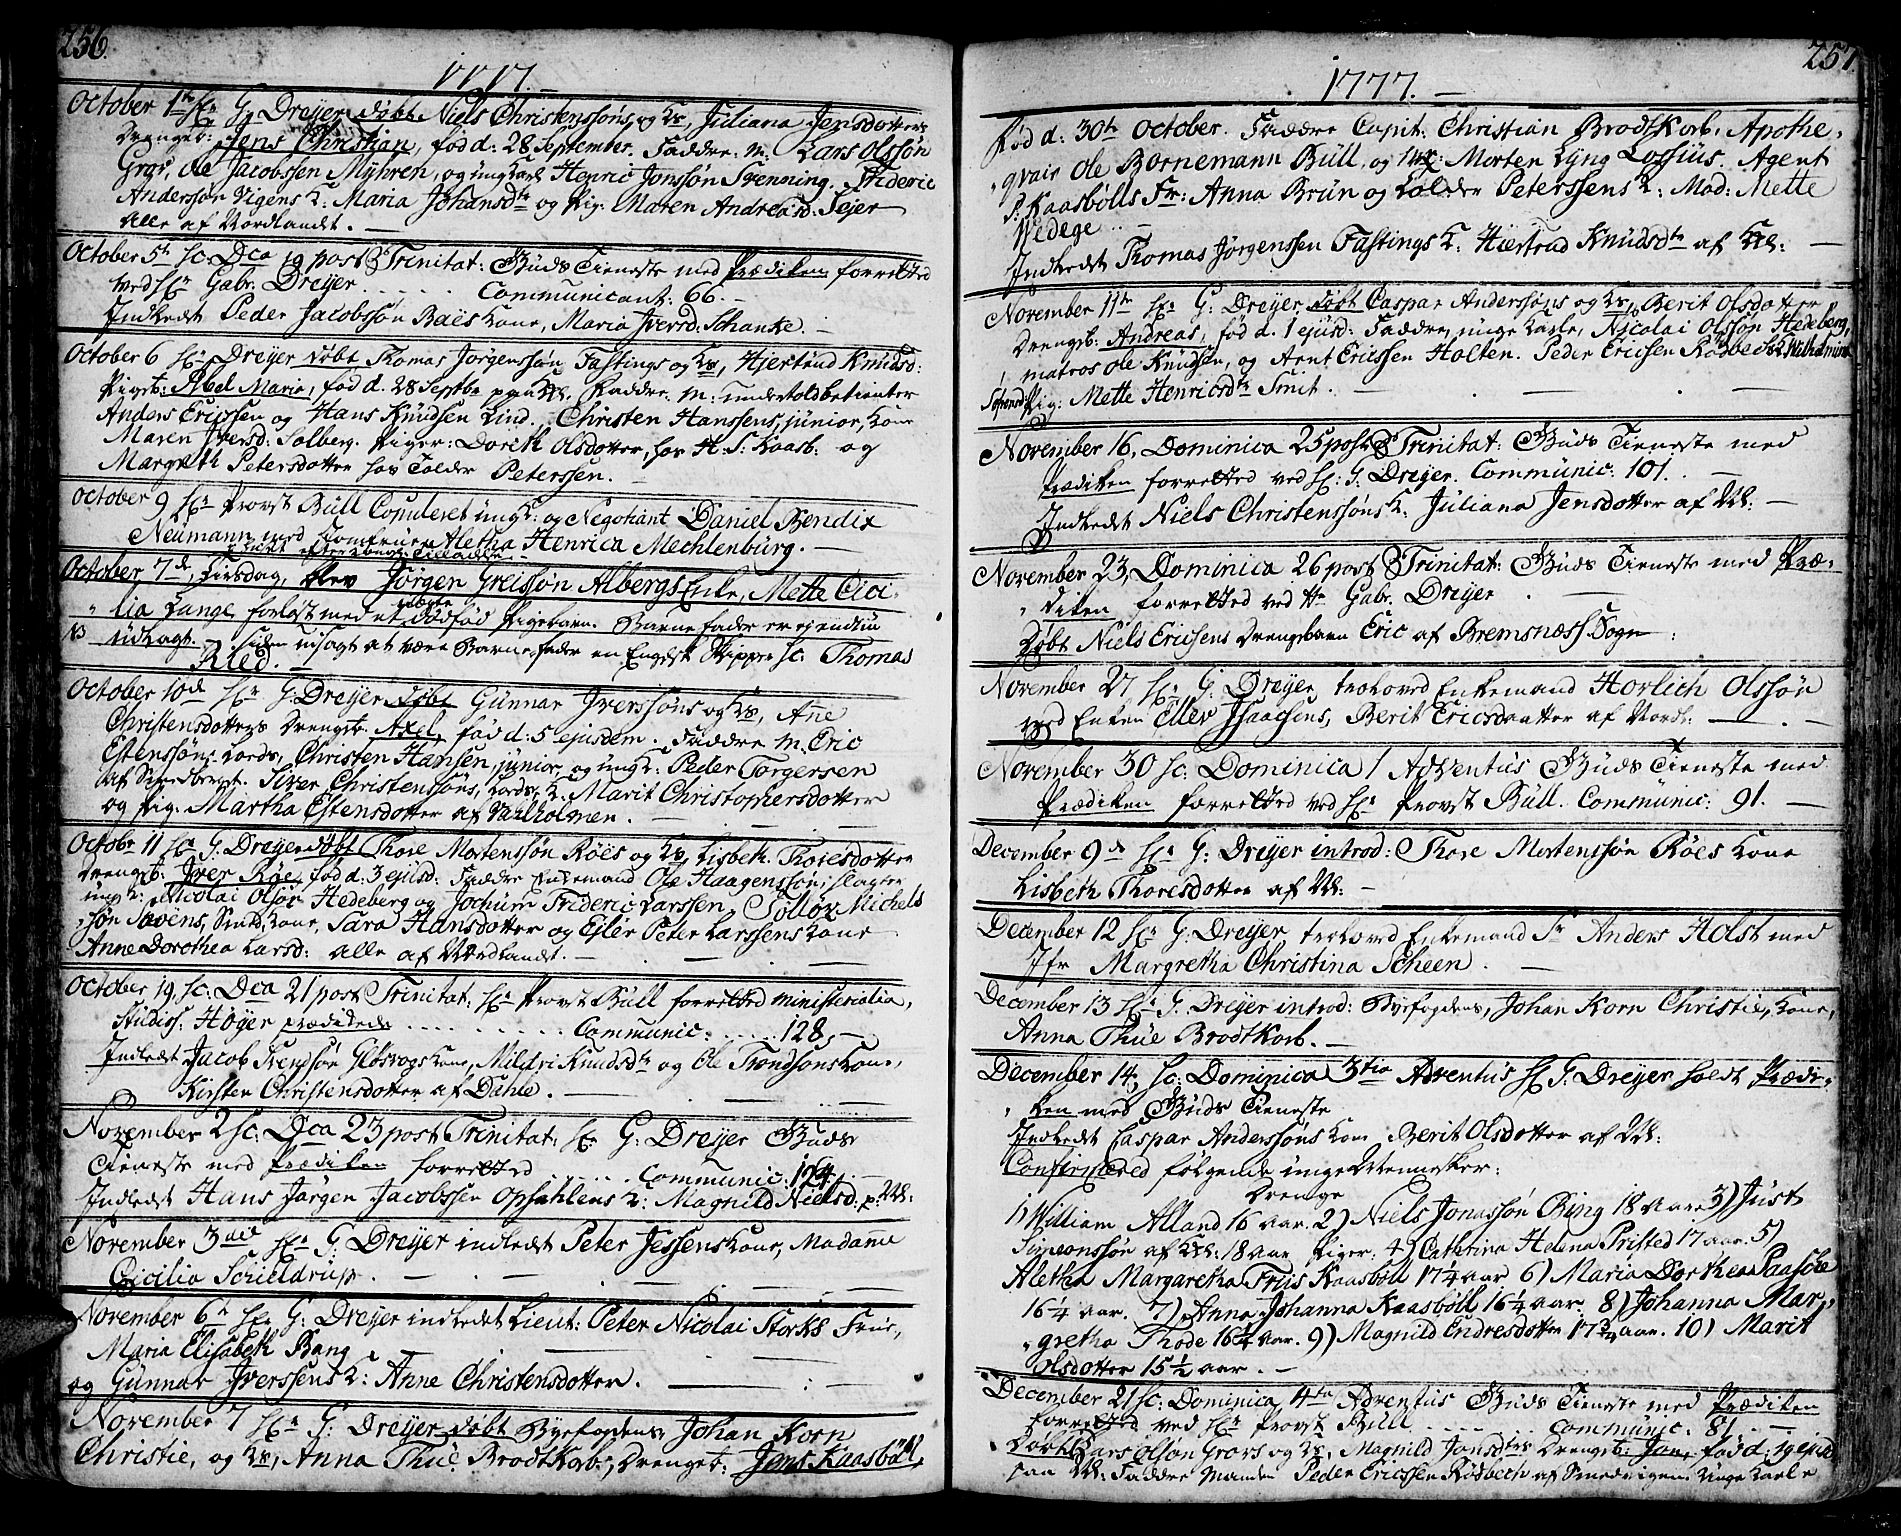 256.
1777. –
October 1te Hr G. Dreyer døbt Niels Christenssøns og K:, Juliana Jensdotters
Drengeb: Jens Christian, fød d: 28 September. Faddre: M: Lars Olssøn
Grov, Ole Jacobssen Myhren, og ung Karl Henric Jonssøn Svenning. Frideric
Anderssøn Vigens K: Maria Johansdtr og Pig: Maren Andreæsd: Fejer
Alle af Nordlandet. –
October 5te sc. Dca 19 post Trinitat: Guds Tieneste med Prædiken forretted
ved Hr Gabr. Dreyer . . . . . Communicant: 66. –
Indledt Peder Jacobssøn Baës Kone, Maria Iversd. Schanke. –
October 6 Hr Dreyer døbt Thomas Jørgenssøn Fastings og K:, Hjertrud Knudsd:
Pigeb: Abel Maria, fød d. 28 Septbr paa Kl. Faddre: M: underToldbetienter
Anders Ericssen og Hans Knudsen Lind. Christen Hanssens, junior, Kone
Maren Iversd. Solberg. Piger: Doreth Olsdotter, hos H. S. Kaasb: og
Margreth Petersdotter hos Tolder Peterssen. –
October 9 Hr Provst Büll Copuleret ung K: og Negotiant Daniel Bendix
Neumann med Jomfrue Aletha Henrica Mechlenburg. –
October 7de, Tirsdag, blev Jørgen Greissøn Albergs Enke, Mette Cici-
„ lia Lange forløst med et dødfød Pigebarn. Barnefader er ej endnu
udlagt. – siden udsagt at være Barnefader en Engelsk Skipper sc. Thomas
Ried. –
October 10de Hr G: Dreyer døbt Gunnar Iverssøns og K:, Anne
Christensdotters Drengeb: Axel, fød d: 5 ejusdem. Faddre M. Eric
Estenssøn Lords, Christen Hansen, junior, og ung K: Peder Torgersen
af Strandberget. Siver Christenssøns, Lords, K. Marit Christophersdotter
og Pig. Martha Estensdotter af Vahlholmen. –
Octobr 11 Hr G: Dreyer døbt Thore Mortenssøn Röes og K:, Lisbeth Thoresdotter
Drengeb: Iver Röe, fød d. 3 ejusd: Faddre Enkemand Ole Haagenssøn, Slagter
ung K: Nicolai Olsør Hedeberg og Jochum Frideric Larssen, Michels
„ søn Svens, Smids, Kone, Sara Hansdotter og Ejler Peter Larssens Kone
Anne Dorothea Larsd: alle af Nordlandet. –
October 19. sc: Dca 21 post Trinitat: Hr Provst Büll forrettede ministerialia,
Studios: Höyer prædikede . . . . . . . . . Communic: . . . . 128, –
Indledt Jacob Svendsør Kone, Knudsdtr og Ole Trondsons Kone,
Kirsten Christensdotter af Dahle. –
November 2 sc: Dca 23 post Trinitat: Hr G: Dreyer Guds
Tieneste med Prædiken forretted . . . . . . Communic: 124. –
Indledt Hans Jørgen Jacobssen Opsahlens K: Magnild Nielsd. p: Kl:
November 3die Hr G: Dreyer indledt Peter Jessens Kone, Madame
Cicilia Schieldrup. –
November 6te Hr G: Dreyer indledt Lieut: Peter Nicolai Storks Frue,
Maria Elisabeth Bang
og Gunnar Iverssens K: Anne Christensdotter. –
November 7 Hr G: Dreyer døbt Byefogdens, Johan Korn
Christie, og K:, Anna Thue Brodtkorb, Drengeb: Jens Kaasböll,
257.
1777. –
fød d: 30te October. Faddre Capit: Christian Brodtkorb. Apothe-
„ qvair Ole Bornemann Büll, og Mr: Morten Lyng Lossius. Agent
S: Kaasbølls Fr: Anna Brün og Tolder Peterssens K: Mad: Mette
Wedege . . –
Indledt Thomas Jørgenssen Fastings K: Hiertrud Knudsdtr af Kl: –
November 11te Hr G: Dreyer døbt Caspar Anderssøns og K:, Berit Olsdotter
Drengeb: Andreas, fød d. 1 ejusd: Faddre, unge Karle, Nicolai Olssøn Hedeberg,
matros Ole Knudsen, og Arnt Ericssen Holten. Peder Ericsen Rødbechs K: Wilhelmina
Sørensd: Pig: Mette Henricsdtr Smit. –
November 16, Dominica 25 post Trinitat: Guds Tieneste med
Prædiken forretted ved Hr: G. Dreyer. Communic: 101. –
Indledt Niels Christenssøns K: Juliana Jensdotter af Kl: –
November 23, Dominica 26 post Trinitat: Guds Tieneste med Præ-
„ diken forrettед ved Hr Gabr. Dreyer . –
Døbt Niels Ericsens Drengebarn Eric af Bremsnæss Sogn :
November 27 Hr G: Dreyer troloved Enkemand Horlich Olssøn
med Enken Ellev Isaachsens, Berit Ericsdaatter af Nordl: –
November 30 sc: Dominica 1 Adventus Guds Tieneste med
Prædiken forretted ved Hr Provst Büll. Communic: 91. –
December 9de Hr G: Dreyer introd: Thore Mortenssøn Röes Kone
Lisbeth Thoresdotter af Kl: –
December 12 Hr G: Dreyer troloved Enkemand Sr Anders Holst med
Jfr Margretha Christina Scheen. –
December 13 Hr G. Dreyer introd: Byefogdens, Johan Korn Christie, Kone,
Anna Thue Brodtkorb. –
December 14 sc: Dominica 3tia Adventus Hr G: Dreyer holdt Prædi-
„ ken med Guds Tieneste
Indledt Caspar Anderssøns Kone Berit Olsdotter af Kl:
Confirmered følgende unge Mennesker:
Drenge
1) William Alland 16 aar. 2) Niels Jonassøn Bing 18 aar 3) Just
Simeonssøn af Kl: 18 aar Piger: 4) Cathrina Helena Pristed 17 aar. 5)
Aletha Margaretha Friis Kaasböll 17¼ aar 6) Maria Dorthea Paasche
16¼ aar. 7) Anna Johanna Kaasböll 16¼ aar. 8) Johanna Mar-
„ gretha Thode 16¼ aar. 9) Magnild Endresdotter 17¾ aar. 10) Marit
Olsdotter 15½ aar. –
December 21 sc: Dominica 4ta Adventus Guds Tieneste med Prædiken
forretted ved Hr Provst Büll . . . . . Communic. 81. –
Døbt Lars Olson Grovs og K:, Magnild Jonsdtrs Drengeb: Jon, fød d. 19 ejusd
paa Kl: Faddre Manden Peder Ericssen Rødbech af Smedvigen. Unge Karle